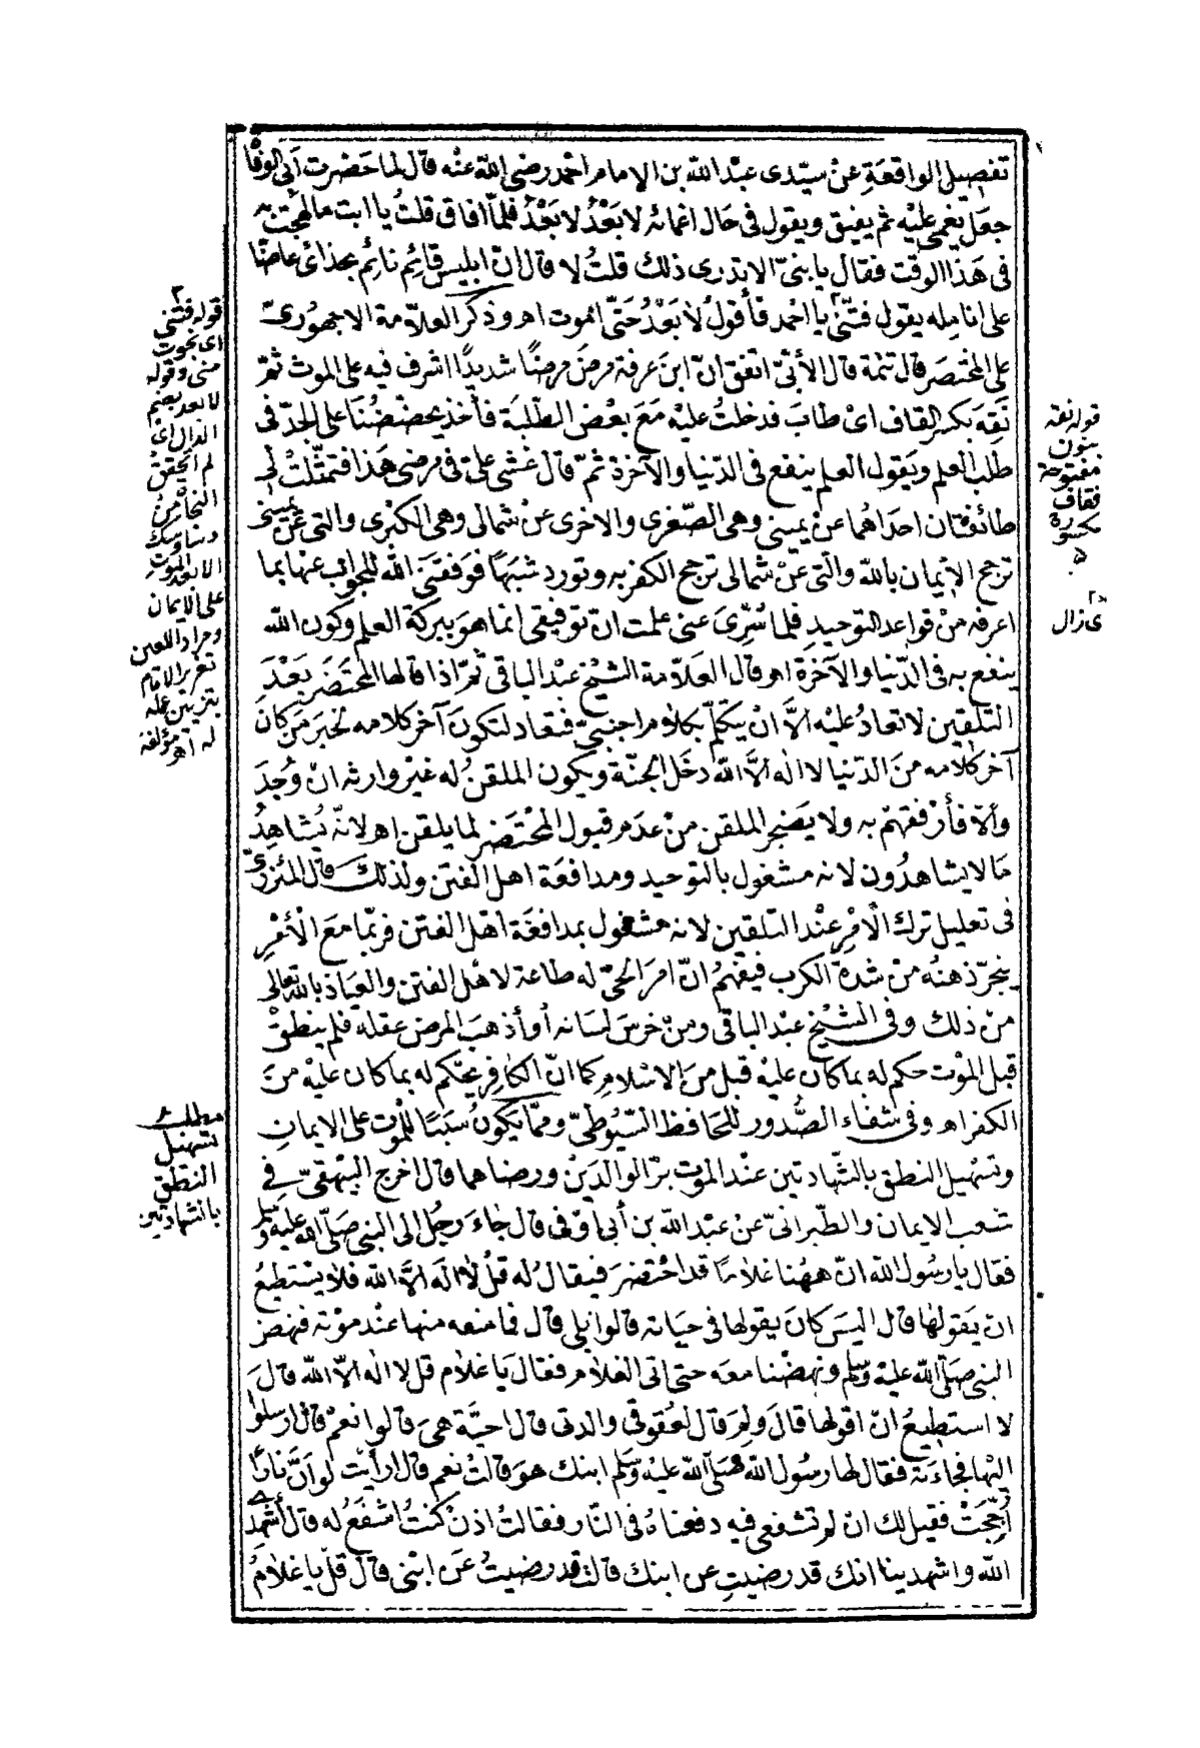 تفصيل الواقعة عن سيدى عبد الله بن الامام احمد رضى الله عنه قال لما حضرت ابى الوفاة
جعل يغمى عليه ثم يفيق ويقول فى حال اغمائه لا بَعْدُ لا بَعْدُ فلما افاق قلتُ يا ابت ما لهجت به
فى هذا الوقت فقال يا بنىّ الا تدرى ذلك قلتُ لا قال انّ ابليس قائم نائم بحذائى عاضّا
على انامله يقول فتّنى يا احمد فأقولُ لا بَعْدُ حَتّى الموت اهـ وذكر العلامة الاجهورىّ
على المختصر قال تتمة قال الأبّىّ اتفق انّ ابنَ عرفة مرضَ مرضًا شديدًا اشرف فيه على الموت ثمّ
نَقِهَ بكسر القاف اىْ طابَ فدخلتُ عليْه مَعَ بعْض الطّلبَة فأخذ يحضّضُنَا على الجدّ فى
طلب العلم ويَقول العلم ينفع فى الدّنيا والآخرة ثمّ قال غشى علىّ فى مرضى هَذا فتمثّلتْ لى
طائفتان احداهما عنْ يمينى وهى الصّغرى والاخرى عنْ شمالى وهى الكبْرى والتى عَنْ يمينى
ترجح الإيمان بالله والتى عَنْ شمالى ترجح الكفر به وتورد شبهًا فوَفقنَى الله للجواب عنها بما
اعرفه منْ قواعد التوحيدِ فلما سُرِّىَ عنى علمت انّ توفيقى انما هوَ ببركة العلم وكون الله
ينفع به فى الدّنيا والآخرة اهـ قال العَلاّمة الشّيْخ عبْد الباقى ثمّ اذا قالها المحْتَضَر بَعْدَ
التلقين لا تعادُ عليْه الاَّ انْ يتكلّم بكلام اجنبىّ فتعاد لتكونَ آخر كلامه لخبَر مَنْ كانَ
آخر كلامه منَ الدّنيا لا اله الاَّ اللّه دخَل الجنّة ويكون الملقنُ له غيْر وارثه انْ وُجدَ
والاّ فأرْفقهمْ به ولا يَضْجر الملقن منْ عدَم قبول المحْتضَر لما يلقن اهـ لانهّ يُشاهِدُ
مَا لا يشاهدُون لانه مشغول بالتوحيد ومدافعَة اهل الفتن ولذلك قال المُنزرىّ
فى تعليل ترك الأمْرِ عنْد التلقين لانه مشغول بمدافعَة اهْل الفتن فربّما معَ الأمْرِ
ينجرّ ذهنُه منْ شدة الكرب فيفهمُ انّ امرَ الحىّ له طاعة لاهْل الفتن والعيَاذ بالله تعالى
منْ ذلك وفى الشيْخ عبْد الباقى ومنْ خرسَ لسَانه أو أذهبَ المرض عقله فلم ينطقْ
قبل الموْت حكم له بما كان عليْه قبل منَ الاسْلام كما انّ الكافِر يحْكم له بما كان عليْه منَ
الكفر اهـ وفى شفاء الصُّدور للحَافظ السّيوُطىّ وممّا يَكونُ سَبَبًا للمْوت على الايمانِ
وتسْهيل النطق بالشّهادتين عنْد الموْت برّ الوالدَيْن ورضاهما قال اخرج البَيْهقىّ فى
شعب الايمان والطّبرانىّ عنْ عبْد الله بن أبى أوْفى قال جَاءَ رجُلٌ الى النبى صَلى الله عليه وسلم
فقال يا رسُول الله انّ ههُنا غلامًا قد احْتضرَ فيقالُ له قلْ لا الَه الاَّ اللّه فلا يسْتطيعُ
انْ يَقولهَا قال اليْسَ كانَ يقولها فى حيَاته قالوا بَلى قال فما منعه منها عنْد موْته فنهضَ
النبى صَلّى اللّه عليْه وسلم ونهضْنا معَه حتى اتى الغلامَ فقال يَا غلام قل لا اله الاّ الله قالَ
لا استطيعُ انْ اقولها قالَ ولِمَ قال لعُقوقى والدتى قال احيَّة هىَ قالوا نعمْ قال ارسلوا
اليْها فجاءَته فقال لها رسُول الله صَلّى الله عليْه وَسَلم ابنك هوَ قالتْ نعم قال ارأيْت لوْ انَّ نارًا
أُجِّجَتْ فقيل لك انْ لم تشفعى فيه دفعناهُ فى النّار فقالتْ اذنْ كنتُ اشفعُ له قال أشهدى
الله واشهدينا انك قد رضيتِ عن ابنك قالت قد رضيتُ عَن ابْنى قال قلْ يا غلامُ
قوله فتّنى
اى نجوت
منى وقوله
لا بعد بضم
الدال اى
لم اتحقق
النجاة من
وساوسك
الا بعد الموت
على الايمان
ومراد اللعين
تغرير الامام
بتزيين عمله
له اهـ مؤلفه
قوله نقه
بنون
مفتوحة
فقاف
مكسورة
اى زال
مطلب
تسهيل
النطق
بالشهادتين